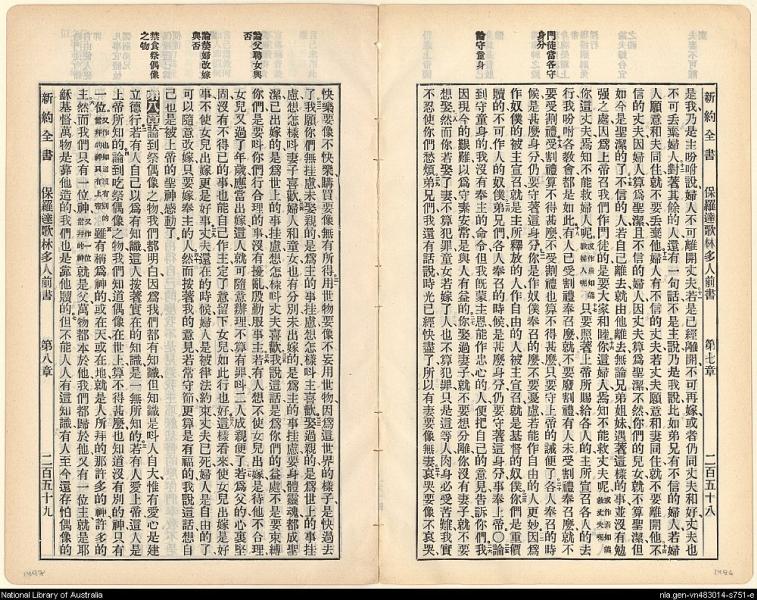 門徒當各守身分
論守童身
新約全書 保羅達歌林多人前書 第七章 二百五十八
是我乃是主吩咐說婦人不可離開丈夫若是已經離開不可再嫁或者仍同丈夫和好丈夫也
不可丟棄婦人對著其餘的人還有一句話不是主說乃是我說比如弟兄有不信的婦人若婦
人願意和夫同住就不要丟棄他婦人有不信的丈夫若丈夫願意和妻同住就不要離開他不
信的丈夫因婦人算爲聖潔且不信的婦人因丈夫算爲聖潔不然你們的兒女就不算聖潔但
如今是聖潔的了不信的人若自己離去就由他離去無論兄弟姐妹遇著這樣的事並沒有勉
強之處因爲上帝召我們作門徒的是要大家和睦這婦人焉知不能救丈夫呢
你這丈夫焉知不能救婦人呢只要照著上帝所賜給各人的主所宣召各人的去
行我吩咐各教會都是如此有人已受割禮奉召麽就不要廢割禮有人未受割禮奉召麽就不
要受割禮受割禮算不得甚麽不受割禮也算不得甚麽只要守上帝的誡便了各人奉召的時
候是甚麽身分仍要守著這身分你是作奴僕奉召的麽不要憂慮若能作自由的人更妙因爲
作奴僕的被主宣召就是主所釋放的人作自由的人被主宣召就是基督的奴僕你們是重價
贖的不可作人的奴僕弟兄們各人奉召的時候是甚麽身分仍要守著這身分事奉上帝〇論
到守童身的我沒有奉主的命令但我旣蒙主恩能作忠心的人便把自己的意見告訴你們我
因現今的艱難以爲守素安常是與人有益的你娶過妻子就不要想分離你沒有妻子就不要
想娶然而你若娶了妻不算犯罪童女若嫁了人也不算犯罪只是這等人肉身必受苦難我實
不忍使你們愁煩弟兄們我還有話說時光已經快盡了所以有妻要像無妻哀哭要像不哀哭
論父聘女與否
論嫠婦改嫁與否
禁食祭偶像之物
快樂要像不快樂購買要像無有所得用世物要像不妄用世物因爲這世界的樣子是快過去
了我願你們無挂慮未娶親的是爲主的事挂慮想怎樣叫主喜歡娶過親的是爲世上的事挂
慮想怎樣叫妻子喜歡婦人和童女也有分別未出嫁的是爲主的事挂慮要身體靈魂都成聖
潔已出嫁的是爲世上的事挂慮想怎樣叫丈夫喜歡我說這話是爲你們的益處不是要束縛
你們是要叫你們行合理的事沒有擾亂殷勤服事主若有人想不使女兒出嫁是待他不合理
女兒又過了年歲應當出嫁這人就可隨意辦理不算有罪叫二人成親便了若爲父的心裏堅
固沒有不得已的事也能自己作主定了意留下女兒如此行也好這樣看來使女兒出嫁是好
事不使女兒出嫁更是好事丈夫還在的時候婦人是被律法約束丈夫已死婦人是自由的了
可以隨意改嫁只要嫁奉主的人然而按著我的意見若常守節更算是有福的我說這話想自
己也是被上帝的聖神感動了
第八章論到祭偶像之物我們都明白因爲我們都有知識但知識是叫人自大惟有愛心是建
立德行若有人自己以爲有知識這人按著實在的知識是一無所知的若有人愛上帝這人是
上帝所知的論到吃祭偶像之物我們知道偶像在世上算不得甚麽也知道沒有別的神只有
一位雖有稱爲神的或在天或在地就是人所拜的那許多的神許多的
主然而我們只有一位神就是父萬物都本於他我們都歸於他又有一位主就是耶
穌基督萬物是靠他造的我們也是靠他贖的但不能人人有這知識有人至今還存怕偶像的
新約全書 保羅達歌林多人前書 第八章 二百五十九
National Library of Australia
nla.gen-vn483014-s751-e